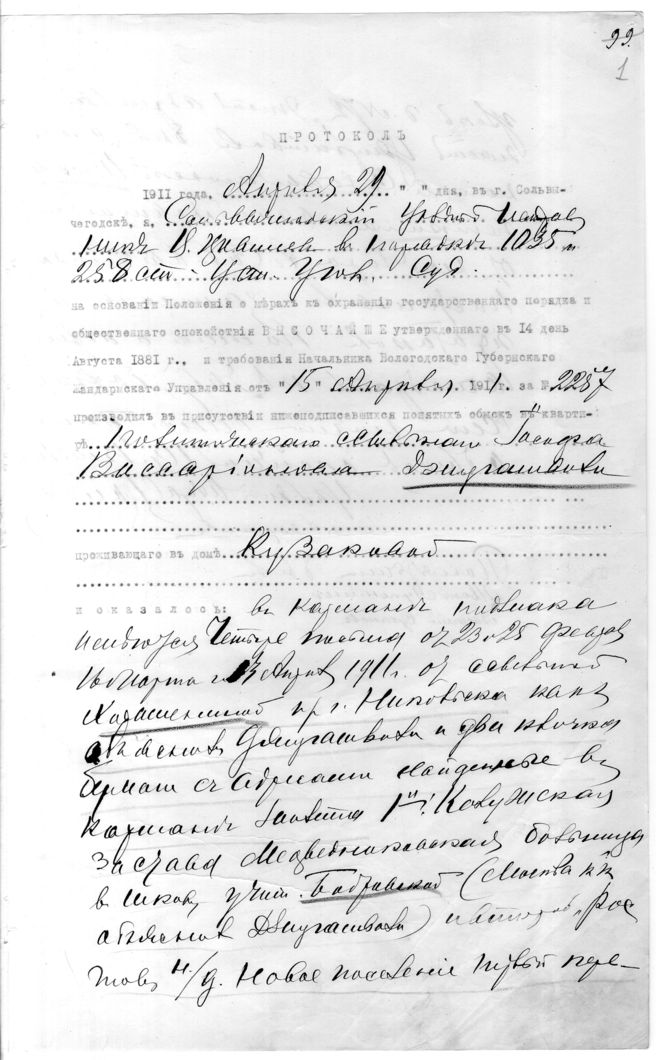 99.
1
ПРОТОКОЛЪ
1911 года, Апрѣля 29 " " дня, въ г. Сольвы-
чегодскѣ, я, Сольвычегодскій Уѣздный
въ порядкѣ 1035 и
258 ст. Уст. Угол. Суд.
на основаніи Положенія о мѣрахъ къ охраненію государственнаго порядка и
общественнаго спокойствія ВЫСОЧАЙШЕ утвержденнаго въ 14 день
Августа 1881 г., и требованія Начальника Вологодскаго Губернскаго
Жандармскаго Управленія отъ "15" Апрѣля 1911 г. за № 2287
производилъ въ присутствіи нижеподписавшихся понятыхъ обыскъ въ кварти-
рѣ Политическаго ссыльнаго Іосифа
Виссаріонова Джугашвили
проживающаго въ домѣ Кузаковой
и оказалось: въ карманѣ пиджака
четыре письма отъ 23 и 25 Февр
16 Марта и 13 Апрѣля 1911 г. отъ ссыльной
изъ г. Никольска какъ
объяснилъ Джугашвили и два клочка
бумаги съ адресами найденные въ
карманѣ 1й: Калужская
застава Медведниковская больница
въ школу учит. Бобровской (Москва какъ
объяснилъ Джугашвили) и второй Рос
товъ н/Д. Новое поселеніе первый пере-